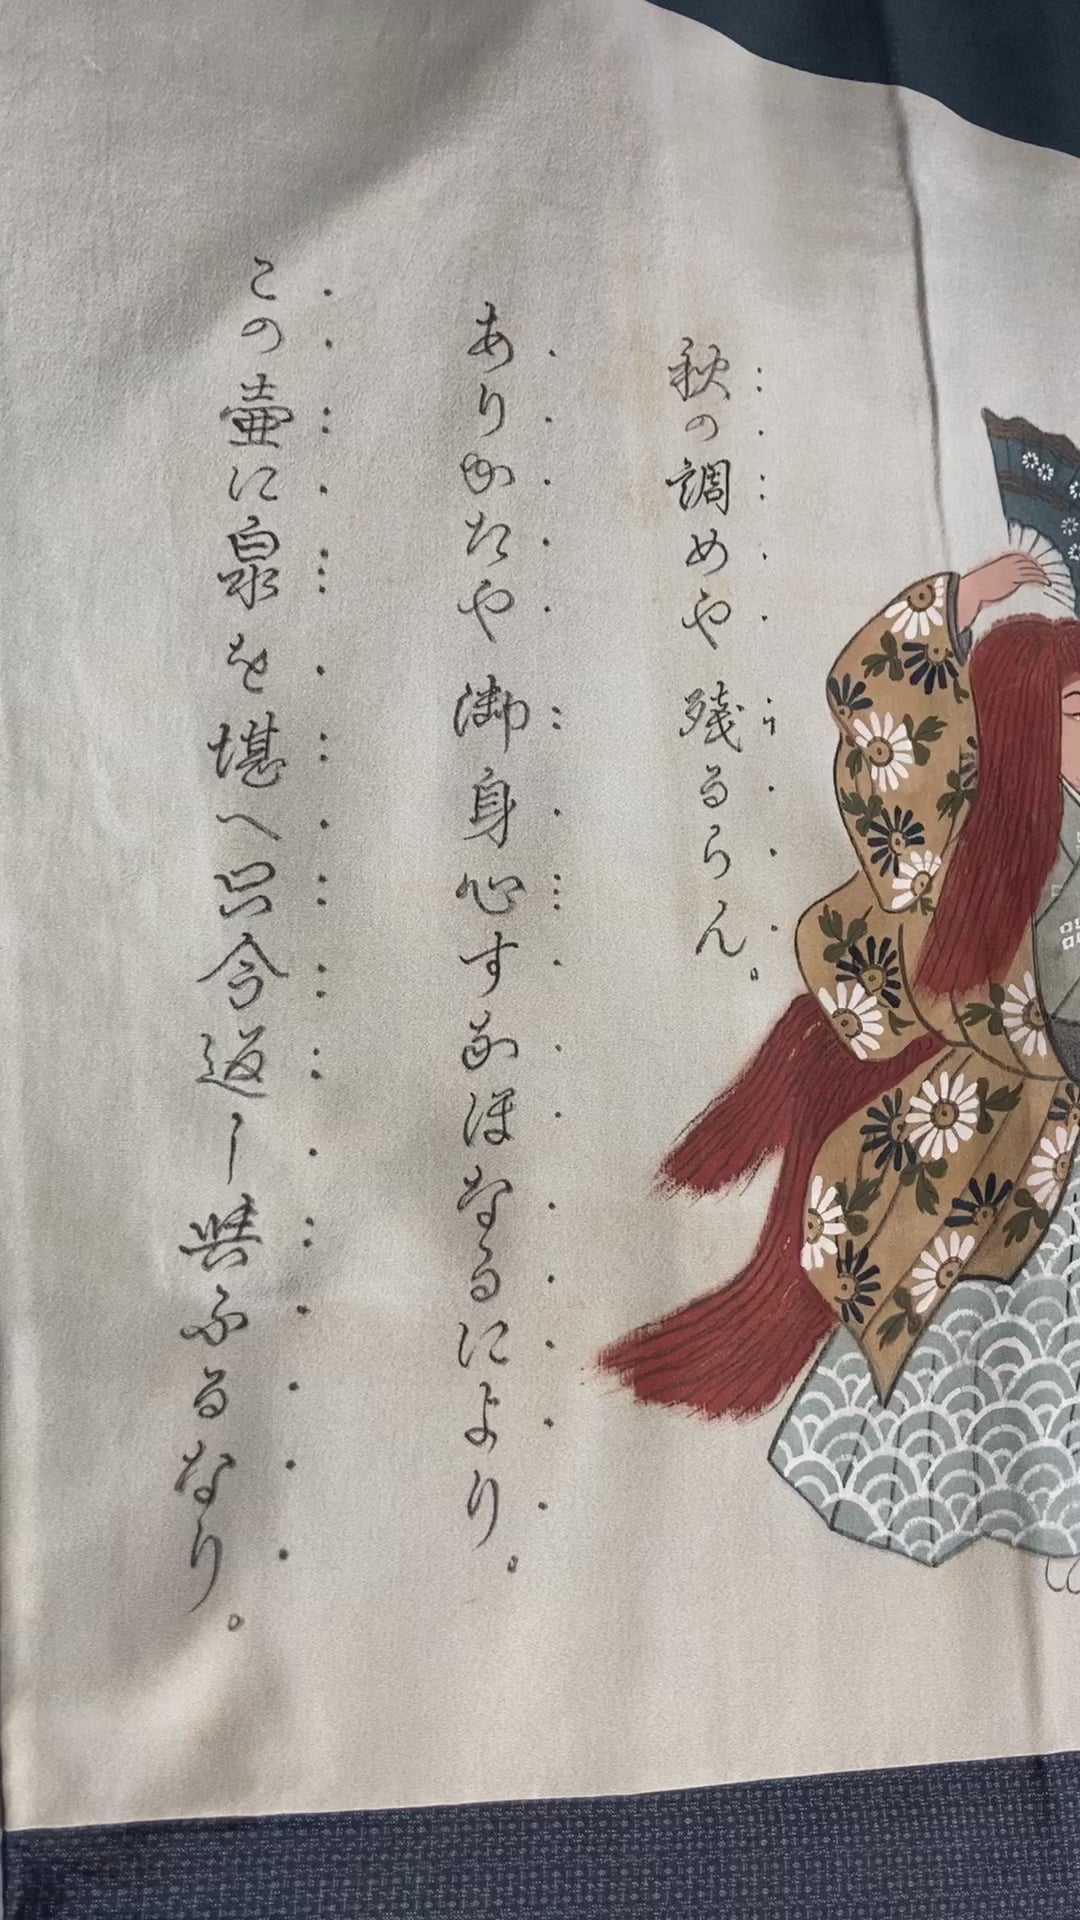 秋の調めや残るらん。
ありかたや御身心すなほなるにより。
この壷に泉を堪へ只今返し與ふるなり。